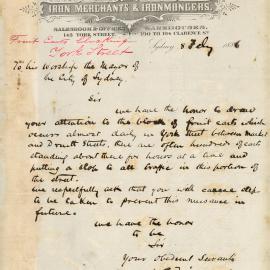 IRON MERCHANTS & IRONMONGERS.
SALESROOM & OFFICES
WAREHOUSES,
145 YORK STREET
190 TO 194 CLARENCE ST
Fruit Carts blocking
York Street
Sydney, 8 July 18
To his Worship the Mayor of
the City of Sydney
Sir
We have the honor to draw
your attention to the block of fruit carts which
occurs almost daily in York Street between Market
and Druitt Streets, there are often hundreds of carts
standing about there for hours at a time and
putting a stop to all traffic in this portion of
the street.
We respectfully ask that you will cause steps
to be taken to prevent this nuisance in
future.
We have the honor
to be
Sir
Your Obedient Servants